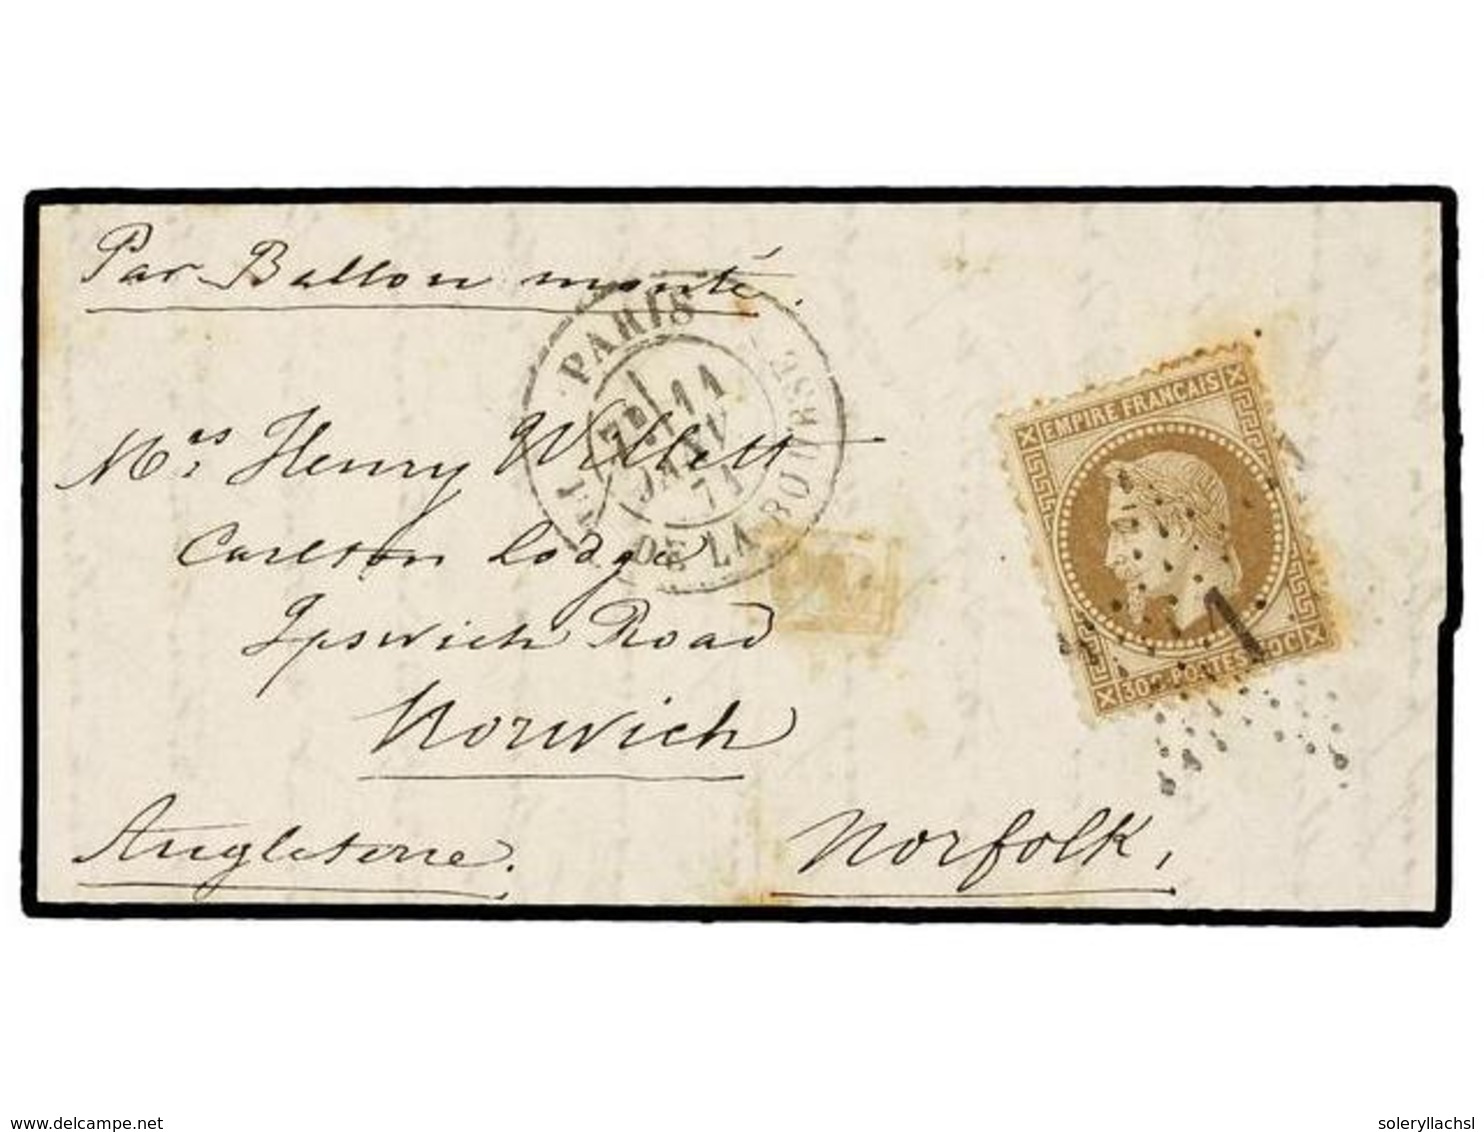 Par Ballon monté.
PARIS
11
JANV
71
DE LA BOURSE
Mrs Henry Willett
Carlton Lodge
Ipswich Road
Norwich
Angleterre.
Norfolk,
EMPIRE FRANÇAIS
30 C POSTES 30 C
1
delcampe.net
soleryllachsl